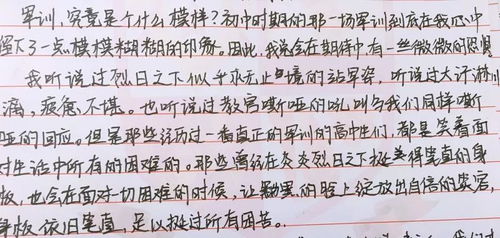 军训,究竟是个什么模样?初中时期的那一场军训到底在我心中
留下了一点模模糊糊的印象。因此,我总会在期待中有一丝微微的恐惧
我听说过烈日之下似乎永无止境的站军姿,听说过大汗淋
漓,疲惫不堪。也听说过教官嘶哑的吼叫与我们同样嘶
哑的回应。但是那些经历过一番真正的军训的高中生们,都是笑着面
对生活中所有的困难的。那些曾经在炎炎烈日之下挺得笔直的身
板,也会在面对一切困难的时候,让黝黑的脸上绽放出自信的笑容,
身板依旧笔直,足以挺过所有困苦。